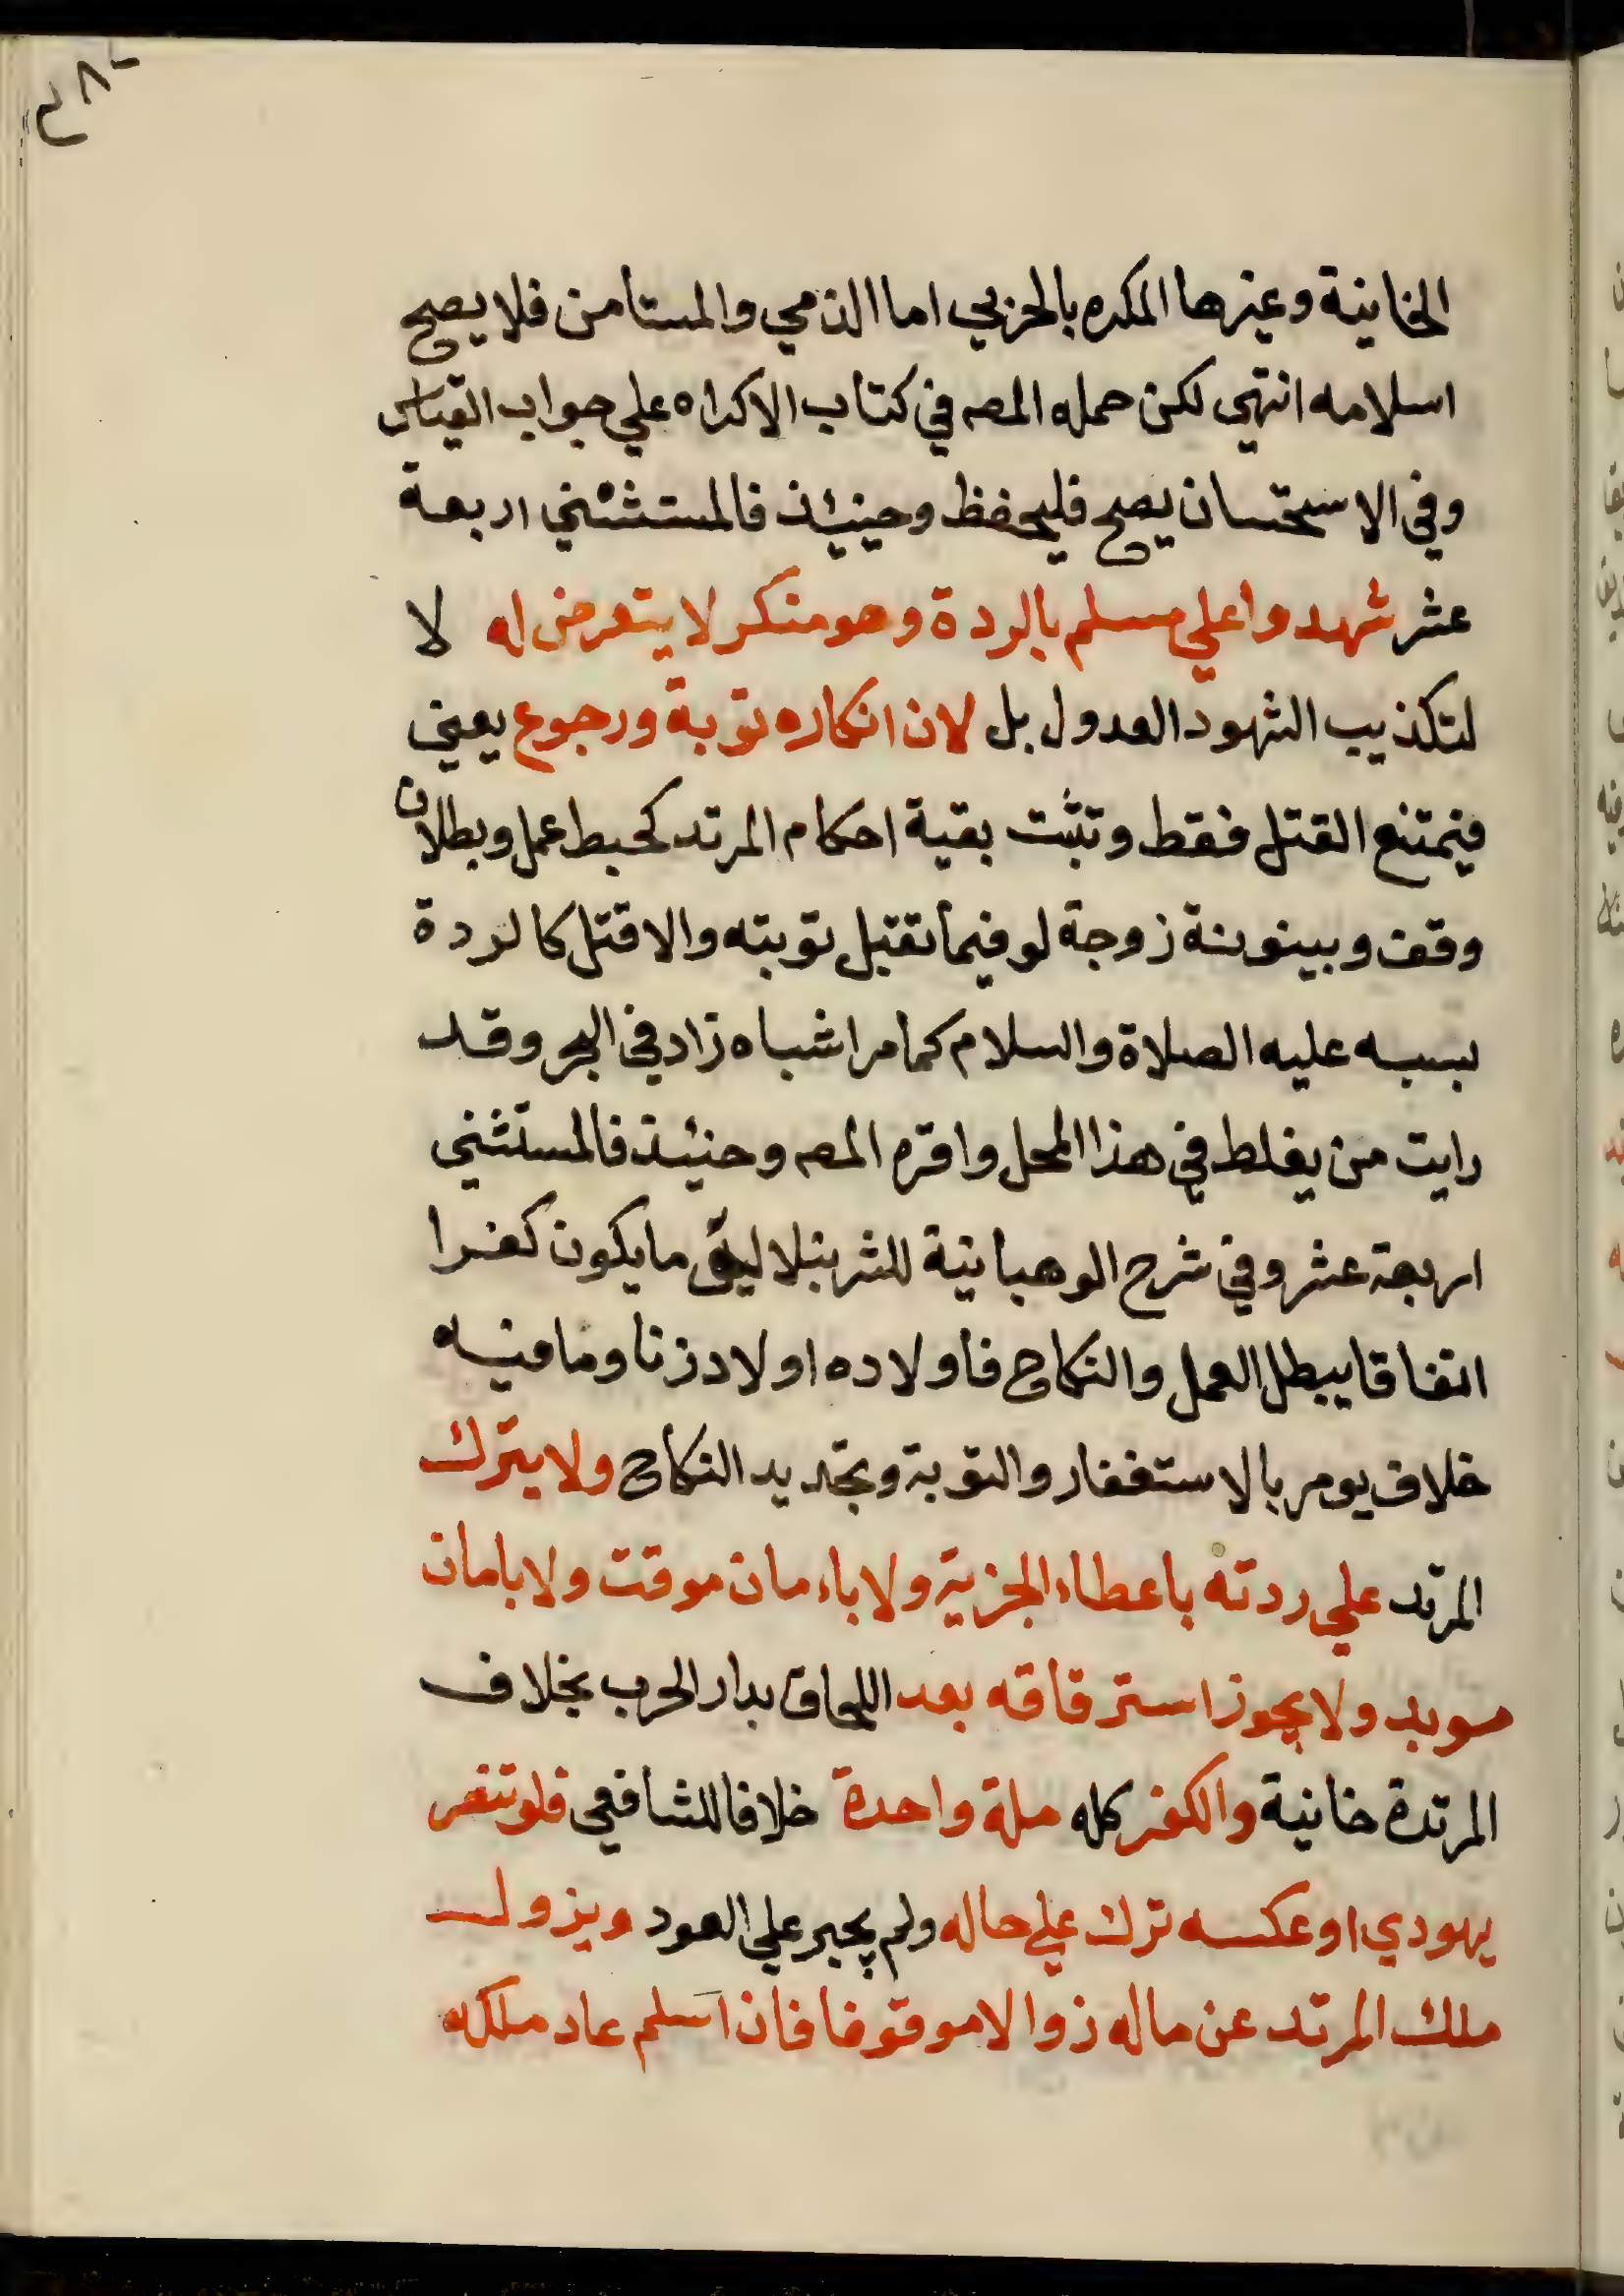 الخانية وغيرها المكره بالحربي اما الذمي والمستأمن فلا يصح
اسلامه انتهي لكن حمله المصه في كتاب الاكراه علي جواب القياس
وفي الاستحسان يصح فليحفظ وحينئذ فالمستثني اربعة
عشر شهدوا علي مسلم بالردة وهو منكر لا يتعرض له لا
لتكذيب الشهود العدول بل لان انكاره توبة ورجوع يعني
فيمتنع القتل فقط وتثبت بقية احكام المرتد كحبط عمل وبطلان
وقف وبينونة زوجة لو فيما تقبل توبته والا قتل كالردة
بسبه عليه الصلاة والسلام كما مر اشباه زاد في البحر وقد
رايت من يغلط في هذا المحل واقره المصه وحنئذ فالمستثني
اربعة عشر وفي شرح الوهبانية للشرنبلالي ما يكون كفرا
اتفاقا يبطل العمل والنكاح فاولاده اولاد زنا وما فيه
خلاف يومر بالاستغفار والتوبة وتجديد النكاح ولا يترك
المرتد علي ردته باعطاء الجزية ولا باءمان موقت ولا بامان
موبد ولا يجوز استرقاقه بعد اللحاق بدار الحرب بخلاف
المرتدة خانية والكفر كله ملة واحدة خلافا للشافعي فلو تنصر
يهودي او عكسه ترك علي حاله ولم يجبر علي العود ويزول
ملك المرتد عن ماله زوالا موقوفا فان اسلم عاد ملكه